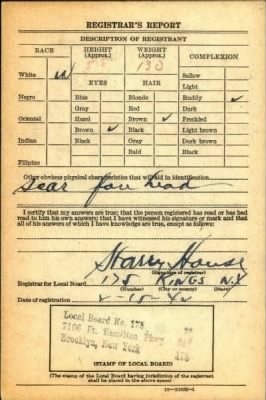 REGISTRAR'S REPORT
DESCRIPTION OF REGISTRANT
RACE HEIGHT (Approx.) WEIGHT (Approx.) COMPLEXION
5 130
White ✓ Sallow
EYES HAIR Light
Negro Blue Blonde Ruddy ✓
Gray Red Dark
Oriental Hazel Brown ✓ Freckled
Brown ✓ Black Light brown
Indian Black Gray Dark brown
Bald Black
Filipino
Other obvious physical characteristics that will aid in identification
Scar fore head
I certify that my answers are true; that the person registered has read or has had
read to him his own answers; that I have witnessed his signature or mark and that
all of his answers of which I have knowledge are true, except as follows:
Harry House
(Signature of registrar)
Registrar for Local Board 175 KINGS N.Y.
(Number) (City or county) (State)
Date of registration 2-15-42
Local Board No. 175
7106 Ft. Hamilton Pkwy
Brooklyn, New York
(STAMP OF LOCAL BOARD)
(The stamp of the Local Board having jurisdiction of the registrant
shall be placed in the above space)